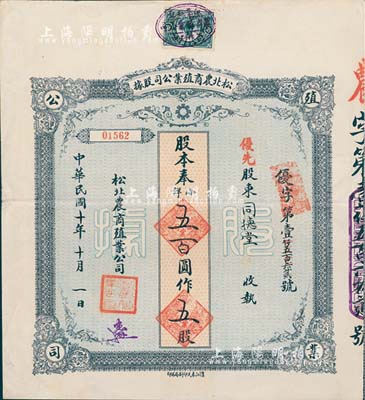 上海阳明拍卖
松北農商殖業公司股據
殖
公
業
司
01562
優字第壹仟五百六拾貳號
優先
股東同德堂 收執
股本奉小洋五百圓作五股
股據
松北農商殖業公司
中華民國十年十月一日
上海阳明拍卖